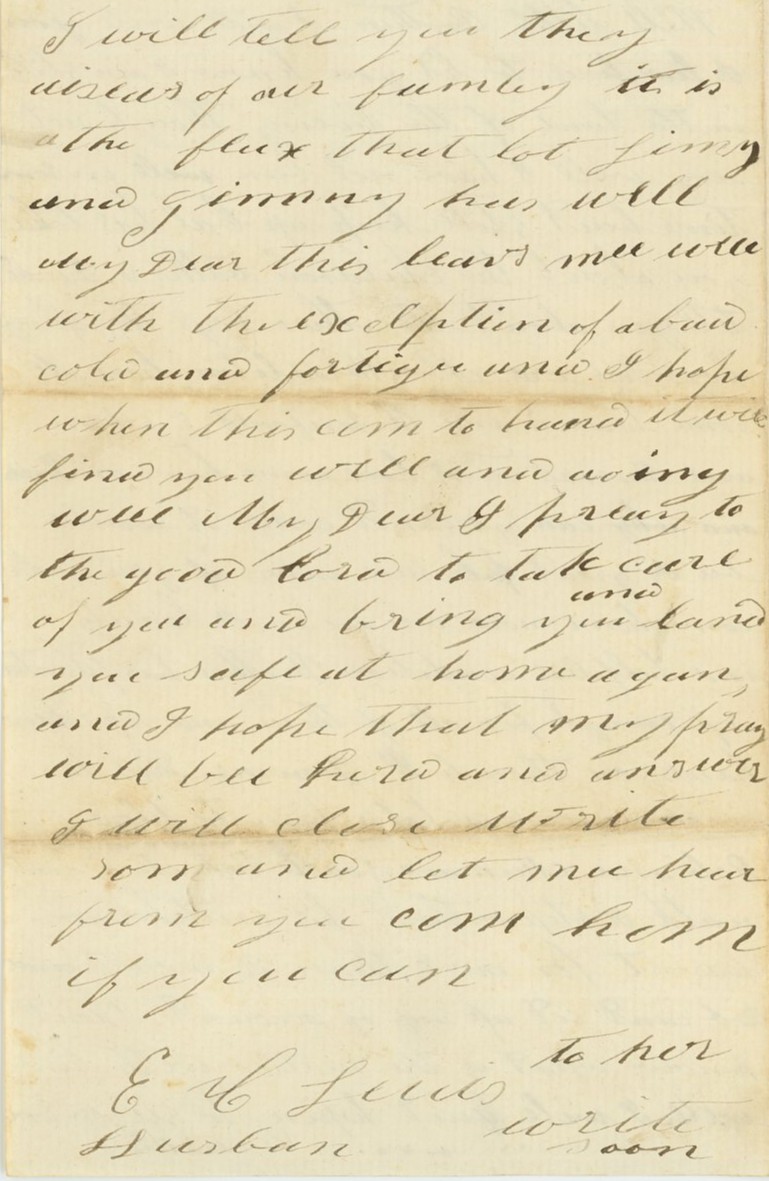 I will tell you they
diseas of our fambley it is
the flux that lot Jimy
and Jimmy has will
My Dear this leaivs mee well
with the excelption of a bad
cold and fortigu and I hope
when this com to hand it will
find you well and doing
well My Dear I preay to
the good Lord to tak care
of you and bring you and land
you safe at home agan
and I hope that my pray
will bee herd and answer
I will close write
som and let mee hear
from you com hom
if you can
E H Lewis to her
Husban write
soon